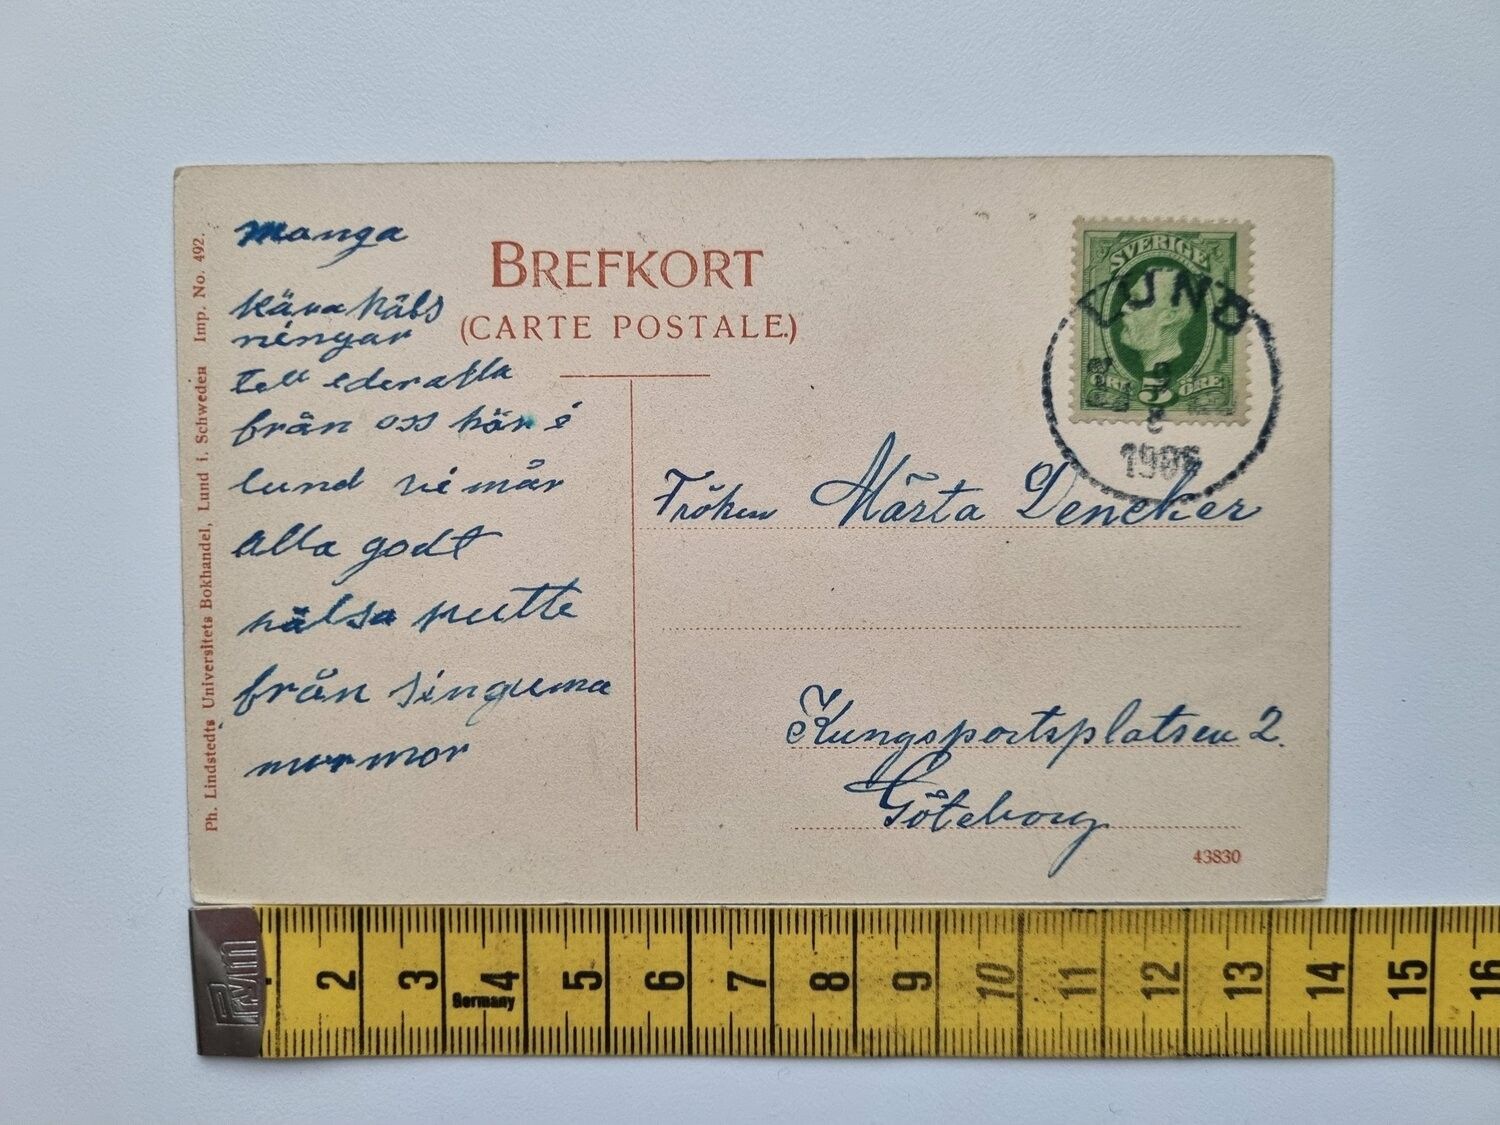 Manga
kära häls
ningar
till eder alla
från oss här i
lund vi mår
alla godt
hälsa putte
från
mormor
BREFKORT
(CARTE POSTALE.)
Ph. Lindstedts Universitets Bokhandel, Lund i. Schweden Imp. No. 492.
SVERIGE
5 ÖRE
LUND
190
Fröken Märta Dencker
Kungsportsplatsen 2.
Göteborg
43830
prym
Germany
1 2 3 4 5 6 7 8 9 10 11 12 13 14 15 16